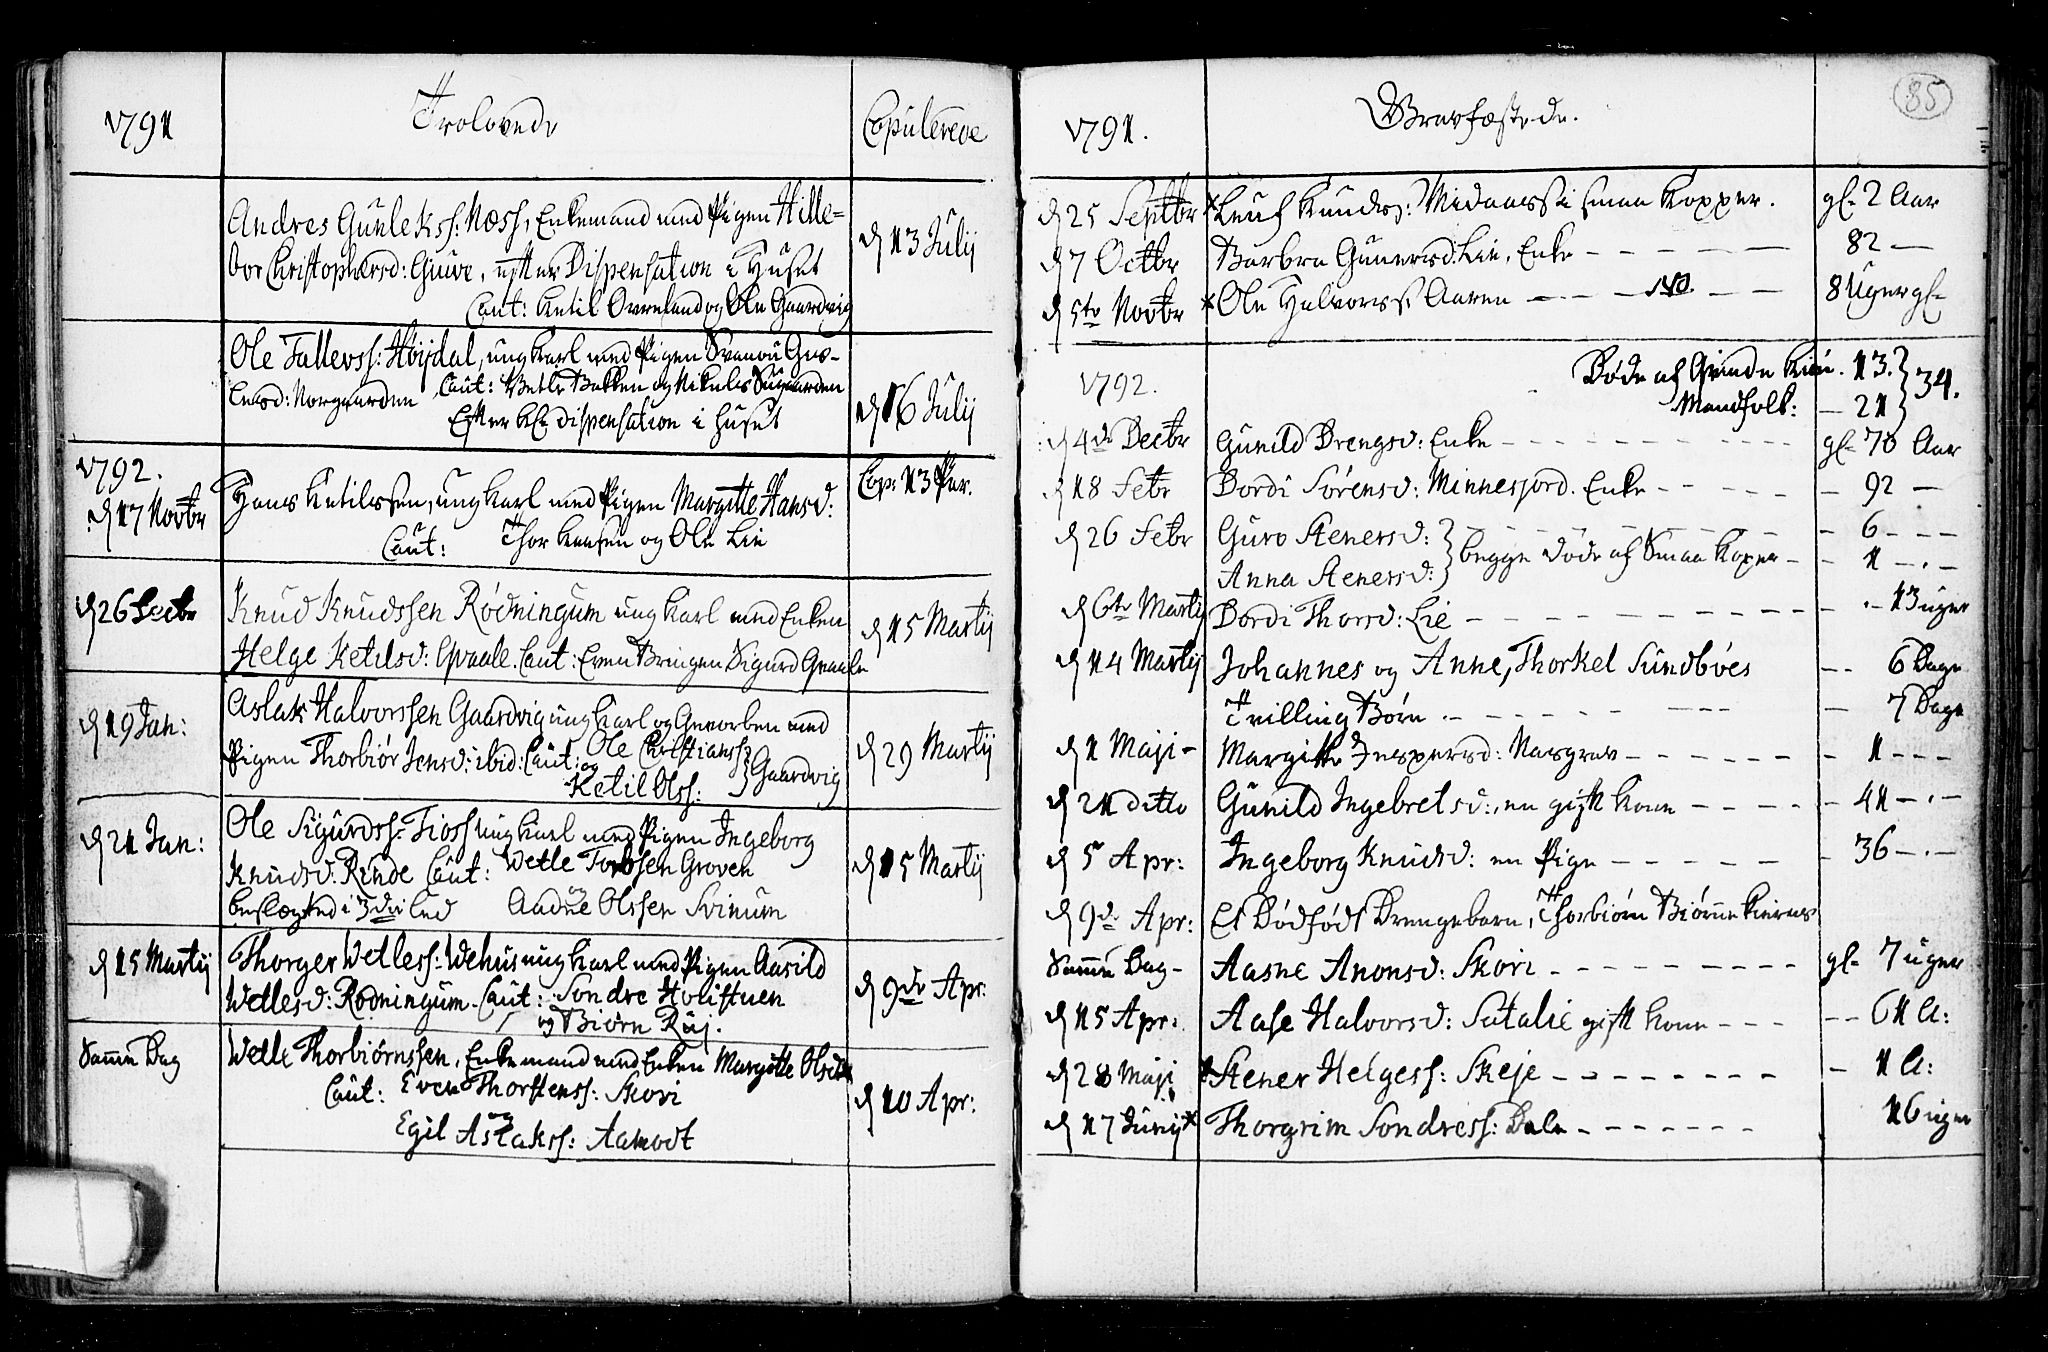 1791
Trolovede
Copulerede
Andres Gunlekss: Næss, Enkemand med Pigen Hille-
bor Christophersd: Gjuve, efter Dispensation i Huset
d 13 Julij
Caut: Ketil Overland og Ole Gaardvig
Ole Tallevss: Høijdal, ung karl med Pigen Svanou Gun-
lersd: Norgaarden Caut: Vetle Bakken og Nikuls Sugaarden
Efter kgl: dispensation i Huset
d 16 Julij
1792.
d 17 Novbr
Hans Ketilssen, ung karl med Pigen Margitte Hansd:
Caut: Thor Aaesen og Ole Lie
Cop: 13 Par.
d 26 Decbr
Knud Knudssen Rødningum ung karl med Enken
Helge Ketilsd: Qvaale. Caut: Even Bringen Sigurd Qvaale
d 15 Martij
d 19 Jan:
Aslak Halvorssen Gaardvig ung karl og Gevorben med
Pigen Thorbiør Jensd: ibid: Caut: Ole Christianss:
og Ketil Olss: } Gaardvig
d 29 Martij
d 21 Jan:
Ole Sigurdss: Tioss ung karl med Pigen Ingeborg
Knudsd: Rinde Caut: Wetle Torbsen Groven
beslægted i 3die Led Aadne Olssen Svinum
d 15 Martij
d 15 Martij
Thorger Wetless: Wehus ung karl med Pigen Aasild
Wetlesd: Rødningum. Caut: Søndre Holistuen
og Biørn Rui.
d 9de Apr:
Samme Dag
Wetle Thorbiørnssen, Enkemand med Enken Margitte Olsd
Caut: Even Thorstenss: Skori
og
Egil Aslakss: Aamodt
d 10 Apr:
85
1791.
Gravfæstede.
d 25 Septbr × Leuf Knudss: Midaars i smaa Kopper. gl. 2 Aar
d 7 Octbr Barbra Gunersd: Lie, Enke - - - 82 -
d 5te Novbr × Ole Halvorss: Aaren - - - NB. - - 8 Uger gl.
1792.
Døde af Qvinde Kiøn. 13. } 34.
Mandfolk: - 21
d 4de Decbr Gunild Drengsd: Enke - - - gl. 70 Aar
d 18 Febr Dordi Sørensd: Minnesjord. Enke - - - 92 -
d 26 Febr Guro Stenersd: - - - 6 - - -
Anna Stenersd: } begge døde af Smaa Koper - - 1 - . -
d 6te Martij Dordi Thorsd: Lie - - - 13 uger
d 14 Martij Johannes og Anne, Thorkel Sundbøes - - 6 Dage
Trilling Børn - - - 7 Dage
d 1 Maji - Margitte Jespersd: Nasgrav - - - 1 - - -
d 21 ditto Gunild Ingebretsd:, en gift kone - - - 41 - . -
d 5 Apr: Ingeborg Knudsd: en Pige - - - 36 - . -
d 9de Apr: Et Dødfødt Drengebarn, Thorbiørn Biørnekieers
Samme Dag - Aasne Anonsd: Skori - - - gl. 7 uger
d 15 Apr: Aase Halvorsd: Sutalie gift kone - - - 61 A:
d 28 Maji × Stener Helgess: Skeje - - - 1 A:
d 17 Junij × Thorgrim Sondress: Dale - - - 16 uger